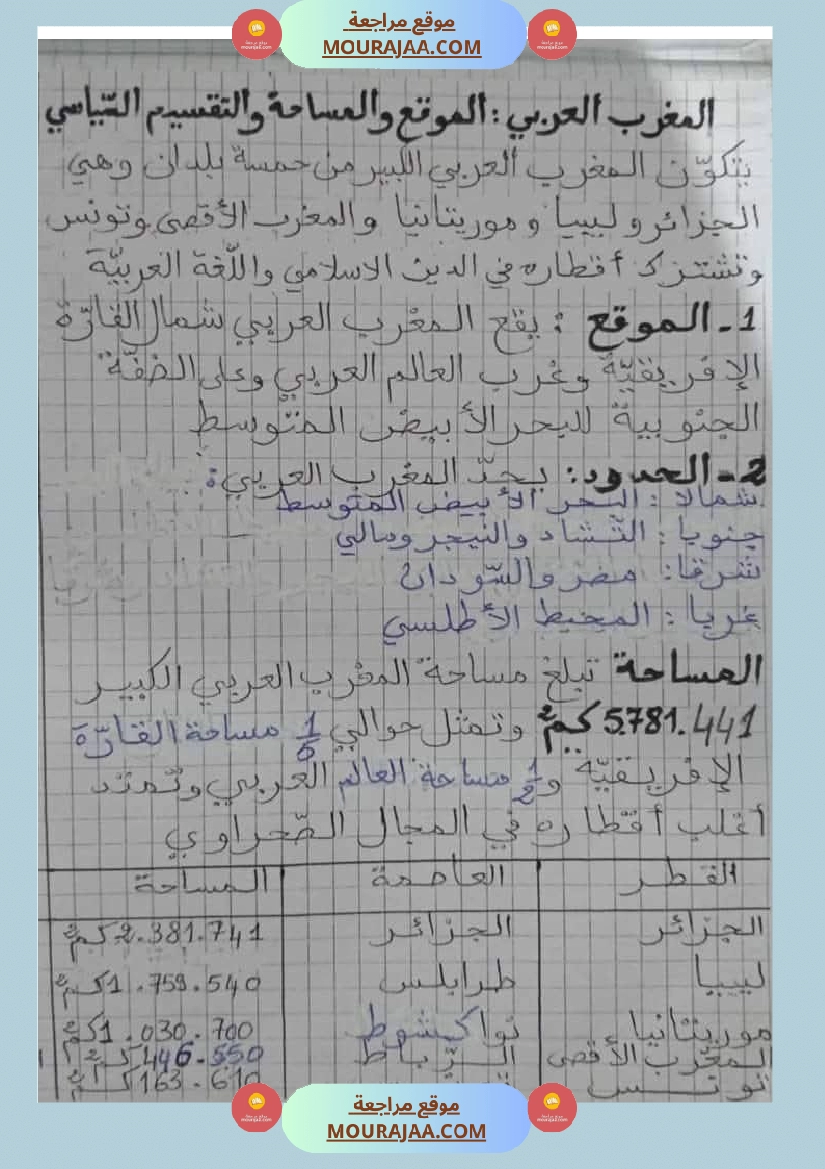 موقع مراجعة
MOURAJAA.COM
المغرب العربي : الموقع والمساحة والتقسيم السّياسي
يتكوّن المغرب العربي الكبير من خمسة بلدان وهي
الجزائر و ليبيا و موريتانيا والمغرب الأقصى وتونس
وتشترك أقطاره في الدين الاسلامي واللّغة العربيّة
1 - الموقع : يقع المغرب العربي شمال القارّة
الإفريقيّة وغرب العالم العربي وعلى الضفّة
الجنوبية للبحر الأبيض المتوسط
2 - الحدود : يحدّ المغرب العربي :
شمالا : البحر الأبيض المتوسط
جنوبا : التّشاد والنّيجر ومالي
شرقا : مصر والسّودان
غربا : المحيط الأطلسي
المساحة تبلغ مساحة المغرب العربي الكبير
5.781.441 كم² وتمثل حوالي 1/5 مساحة القارّة
الإفريقيّة و 1/2 مساحة العالم العربي وتمتد
أغلب أقطاره في المجال الصّحراوي
القطر العاصمة المساحة
الجزائر الجزائر 2.381.741 كم²
ليبيا طرابلس 1.759.540 كم²
موريتانيا نواكشوط 1.030.700 كم²
المغرب الأقصى الرّباط 446.550 كم²
تونس 163.610 كم²
موقع مراجعة
MOURAJAA.COM